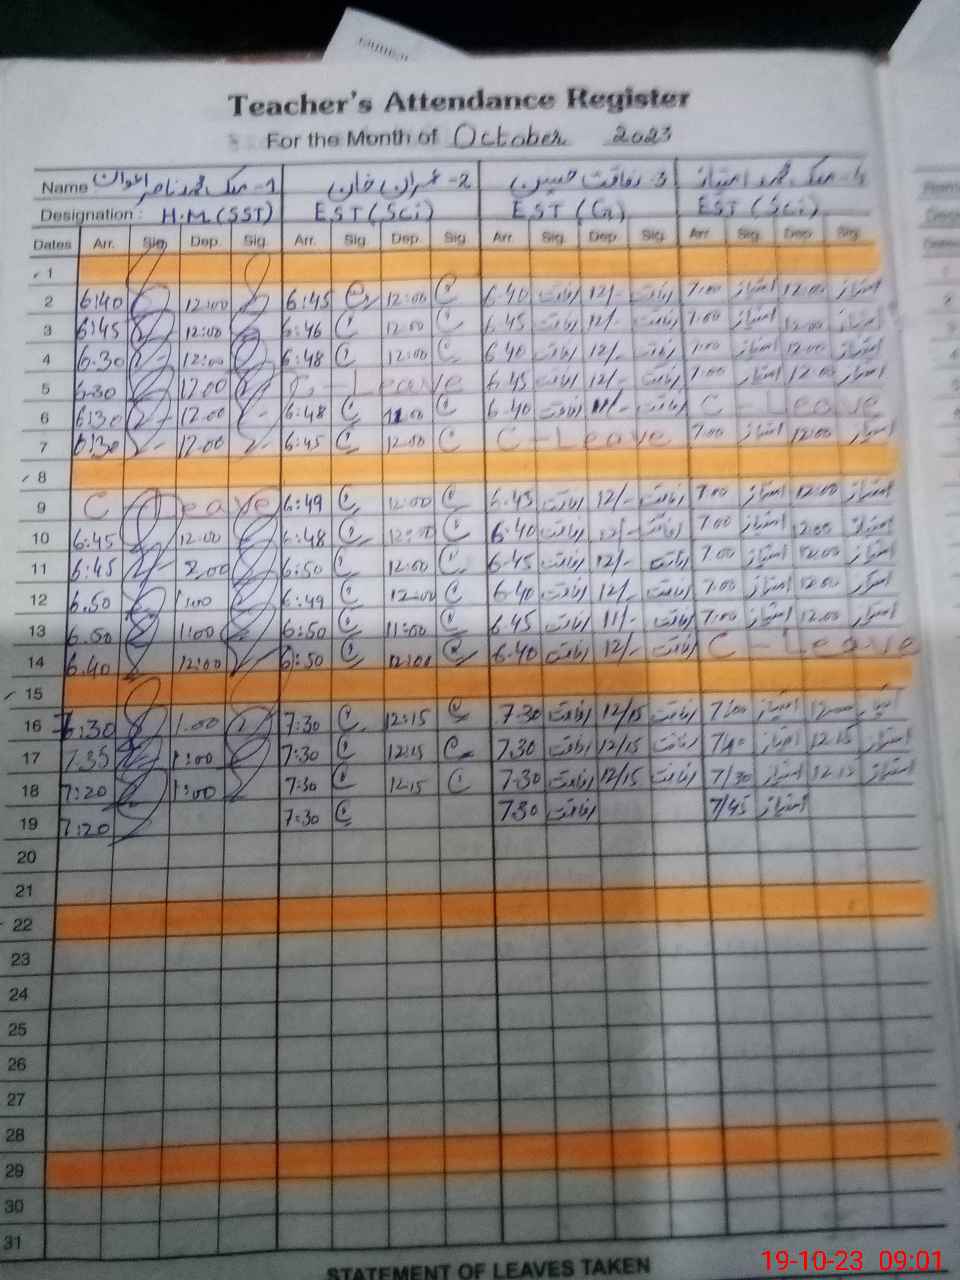 Teacher's Attendance Register
For the Month of October 2023
Name 1- ملک محمد ناصر اعوان 2- عمران خان 3- رفاقت حسین 4- ملک محمد امتیاز
Designation : H.M(SST) EST(Sci) EST(G) EST(Sci)
Dates Arr. Sig. Dep. Sig. Arr. Sig. Dep. Sig. Arr. Sig. Dep. Sig. Arr. Sig. Dep. Sig.
1
2 6:40 12:00 6:45 12:00 6.40 رفاقت 12/- رفاقت 7.00 امتیاز 12.00 امتیاز
3 6:45 12:00 6:46 12:00 6.45 رفاقت 12/- رفاقت 7.00 امتیاز 12:00 امتیاز
4 6.30 12:00 6:48 12:00 6.40 رفاقت 12/- رفاقت 7.00 امتیاز 12.00 امتیاز
5 6.30 12.00 C-Leave 6.45 رفاقت 12/- رفاقت 7.00 امتیاز 12.00 امتیاز
6 6:30 12.00 6:48 11:00 6.40 رفاقت 11/- رفاقت C-Leave
7 6:30 12.00 6:45 12:00 C-Leave 7.00 امتیاز 12:00 امتیاز
8
9 C Leave 6:49 12:00 6.45 رفاقت 12/- رفاقت 7.00 امتیاز 12.00 امتیاز
10 6:45 12.00 6:48 12:00 6.40 رفاقت 12/- رفاقت 7.00 امتیاز 12.00 امتیاز
11 6:45 2.00 6:50 12:00 6.45 رفاقت 12/- رفاقت 7.00 امتیاز 12.00 امتیاز
12 6.50 1:00 6:49 12:00 6.40 رفاقت 12/- رفاقت 7.00 امتیاز 12.00 امتیاز
13 6.50 1:00 6:50 11:00 6.45 رفاقت 11/- رفاقت 7.00 امتیاز 12.00 امتیاز
14 6.40 12:00 6:50 12:00 6.40 رفاقت 12/- رفاقت C-Leave
15
16 :30 1.00 7:30 12:15 7.30 رفاقت 12/15 رفاقت امتیاز امتیاز
17 7.35 1:00 7:30 12:15 7.30 رفاقت 12/15 رفاقت 7/40 امتیاز 12.15 امتیاز
18 7:20 1:00 7:30 12.15 7.30 رفاقت 12/15 رفاقت 7/30 امتیاز 12.15 امتیاز
19 7:20 7:30 7.30 رفاقت 7/45 امتیاز
20
21
22
23
24
25
26
27
28
29
30
31
STATEMENT OF LEAVES TAKEN
19-10-23 09:01